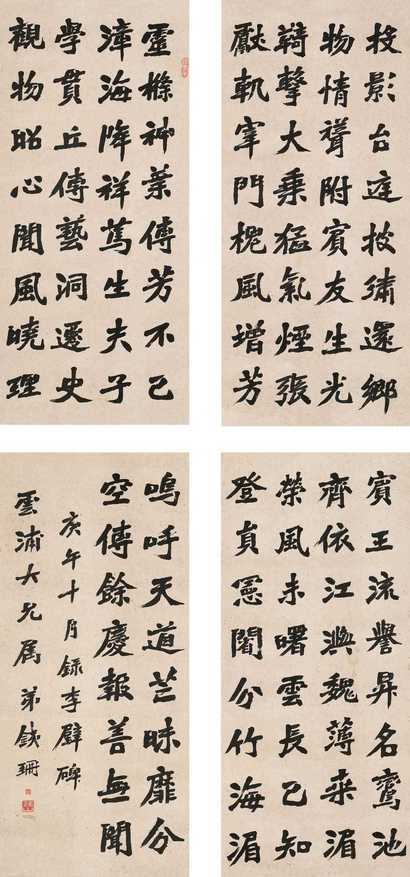 靈條神葉傳芳不已
漳海降祥篤生夫子
學貫丘傳藝洞遷史
觀物昭心聞風曉理
賓王流譽昇名鸞池
齊依江輿魏薄桒湄
榮風未曙雲長已知
登貞憲閣分竹海湄
投影台庭披繡還鄉
物情聳附賓友生光
韝擊大乘猛氣煙張
獻軌宰門槐風增芳
嗚呼天道芒昧靡分
空傳餘慶報善無聞
庚午十月錄李璧碑
雲浦大兄屬弟鐵珊